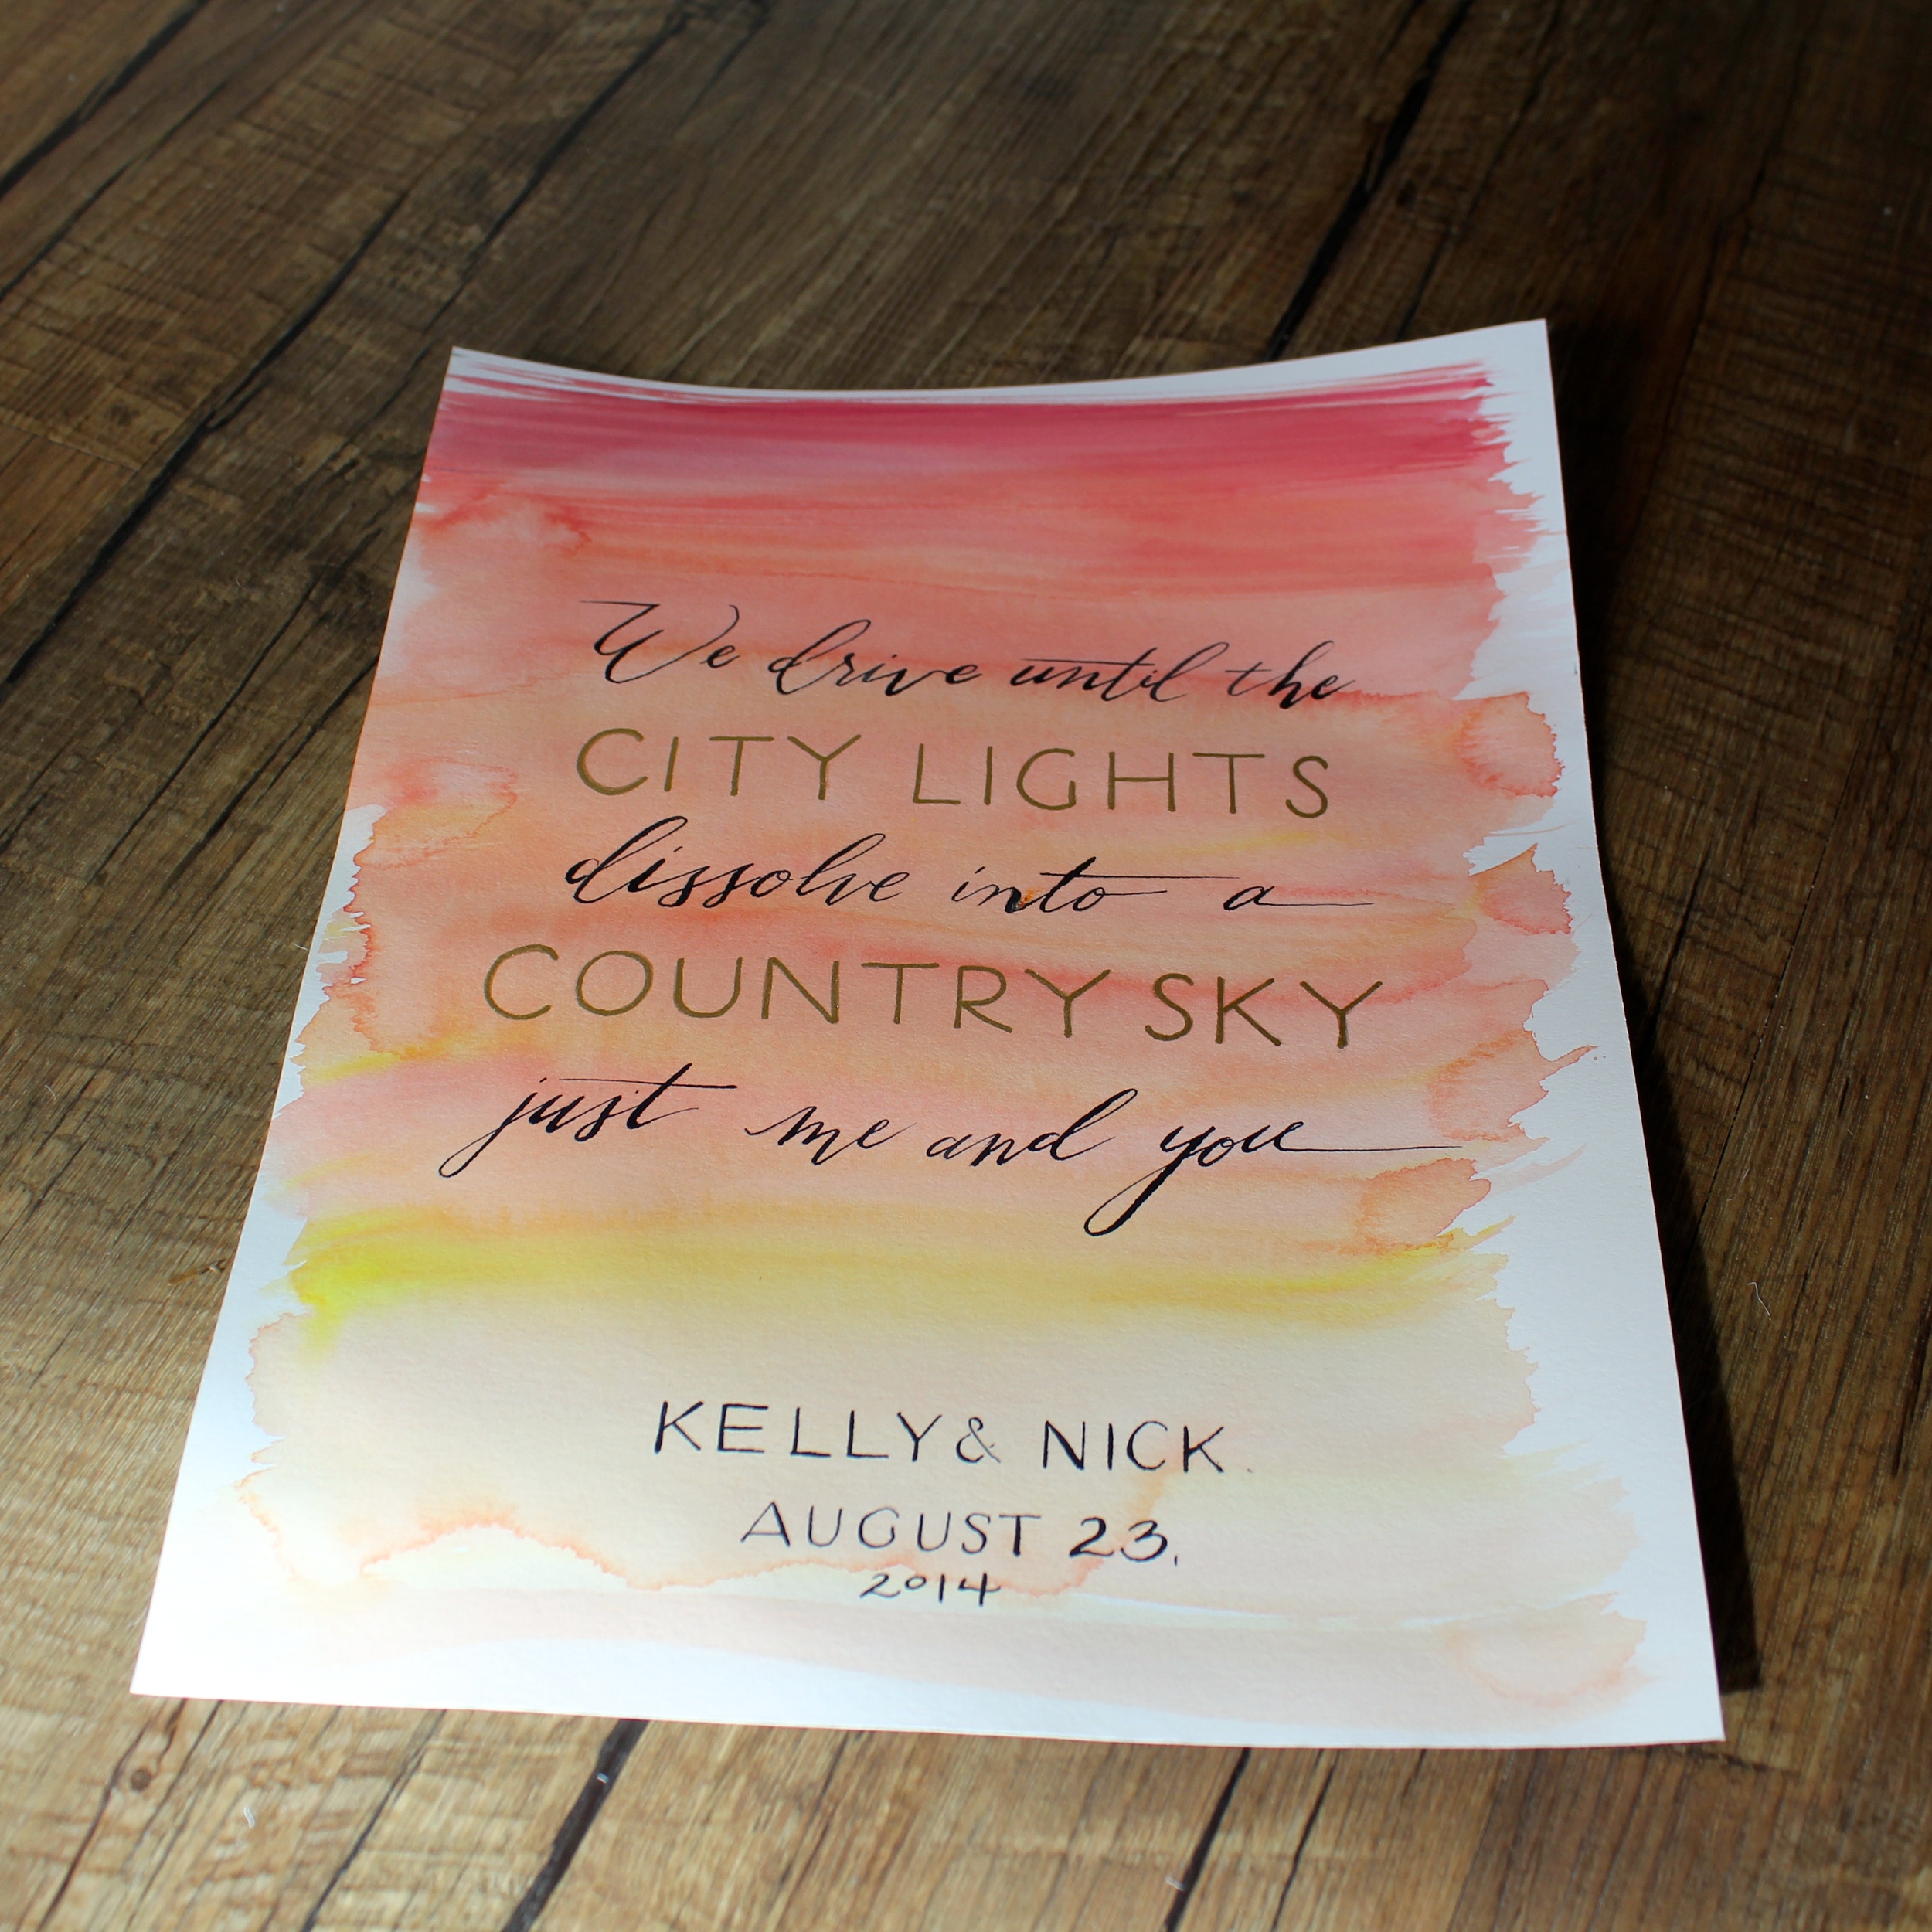 We drive until the
CITY LIGHTS
dissolve into a
COUNTRY SKY
just me and you
KELLY & NICK.
AUGUST 23,
2014